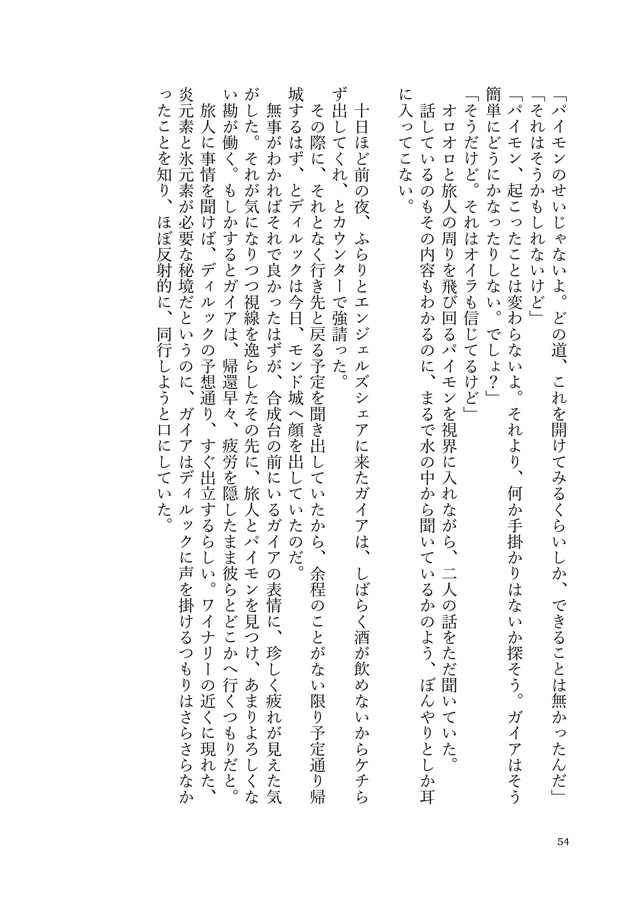 「パイモンのせいじゃないよ。どの道、これを開けてみるくらいしか、できることは無かったんだ」
「それはそうかもしれないけど」
「パイモン、起こったことは変わらないよ。それより、何か手掛かりはないか探そう。ガイアはそう
簡単にどうにかなったりしない。でしょ？」
「そうだけど。それはオイラも信じてるけど」
オロオロと旅人の周りを飛び回るパイモンを視界に入れながら、二人の話をただ聞いていた。
話しているのもその内容もわかるのに、まるで水の中から聞いているかのよう、ぼんやりとしか耳
に入ってこない。
十日ほど前の夜、ふらりとエンジェルズシェアに来たガイアは、しばらく酒が飲めないからケチら
ず出してくれ、とカウンターで強請った。
その際に、それとなく行き先と戻る予定を聞き出していたから、余程のことがない限り予定通り帰
城するはず、とディルックは今日、モンド城へ顔を出していたのだ。
無事がわかればそれで良かったはずが、合成台の前にいるガイアの表情に、珍しく疲れが見えた気
がした。それが気になりつつ視線を逸らしたその先に、旅人とパイモンを見つけ、あまりよろしくな
い勘が働く。もしかするとガイアは、帰還早々、疲労を隠したまま彼らとどこかへ行くつもりだと。
旅人に事情を聞けば、ディルックの予想通り、すぐ出立するらしい。ワイナリーの近くに現れた、
炎元素と氷元素が必要な秘境だというのに、ガイアはディルックに声を掛けるつもりはさらさらなか
ったことを知り、ほぼ反射的に、同行しようと口にしていた。
54